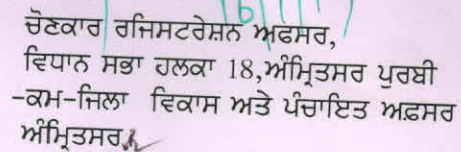 ਚੋਣਕਾਰ ਰਜਿਸਟਰੇਸ਼ਨ ਅਫਸਰ,
ਵਿਧਾਨ ਸਭਾ ਹਲਕਾ 18,ਅੰਮ੍ਰਿਤਸਰ ਪੁਰਬੀ
-ਕਮ-ਜਿਲਾ ਵਿਕਾਸ ਅਤੇ ਪੰਚਾਇਤ ਅਫ਼ਸਰ
ਅੰਮ੍ਰਿਤਸਰ